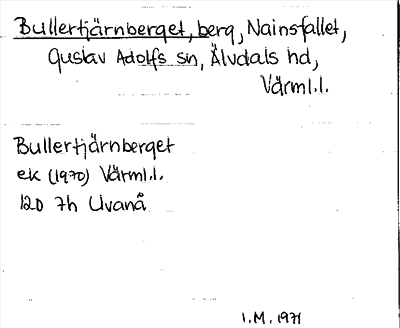 Bullertjärnberget, berg, Nainsfallet,
Gustav Adolfs sn, Älvdals hd,
Värml.l.
Bullertjärnberget
ek (1970) Värml.l.
12D 7h Uvanå
I.M. 1971